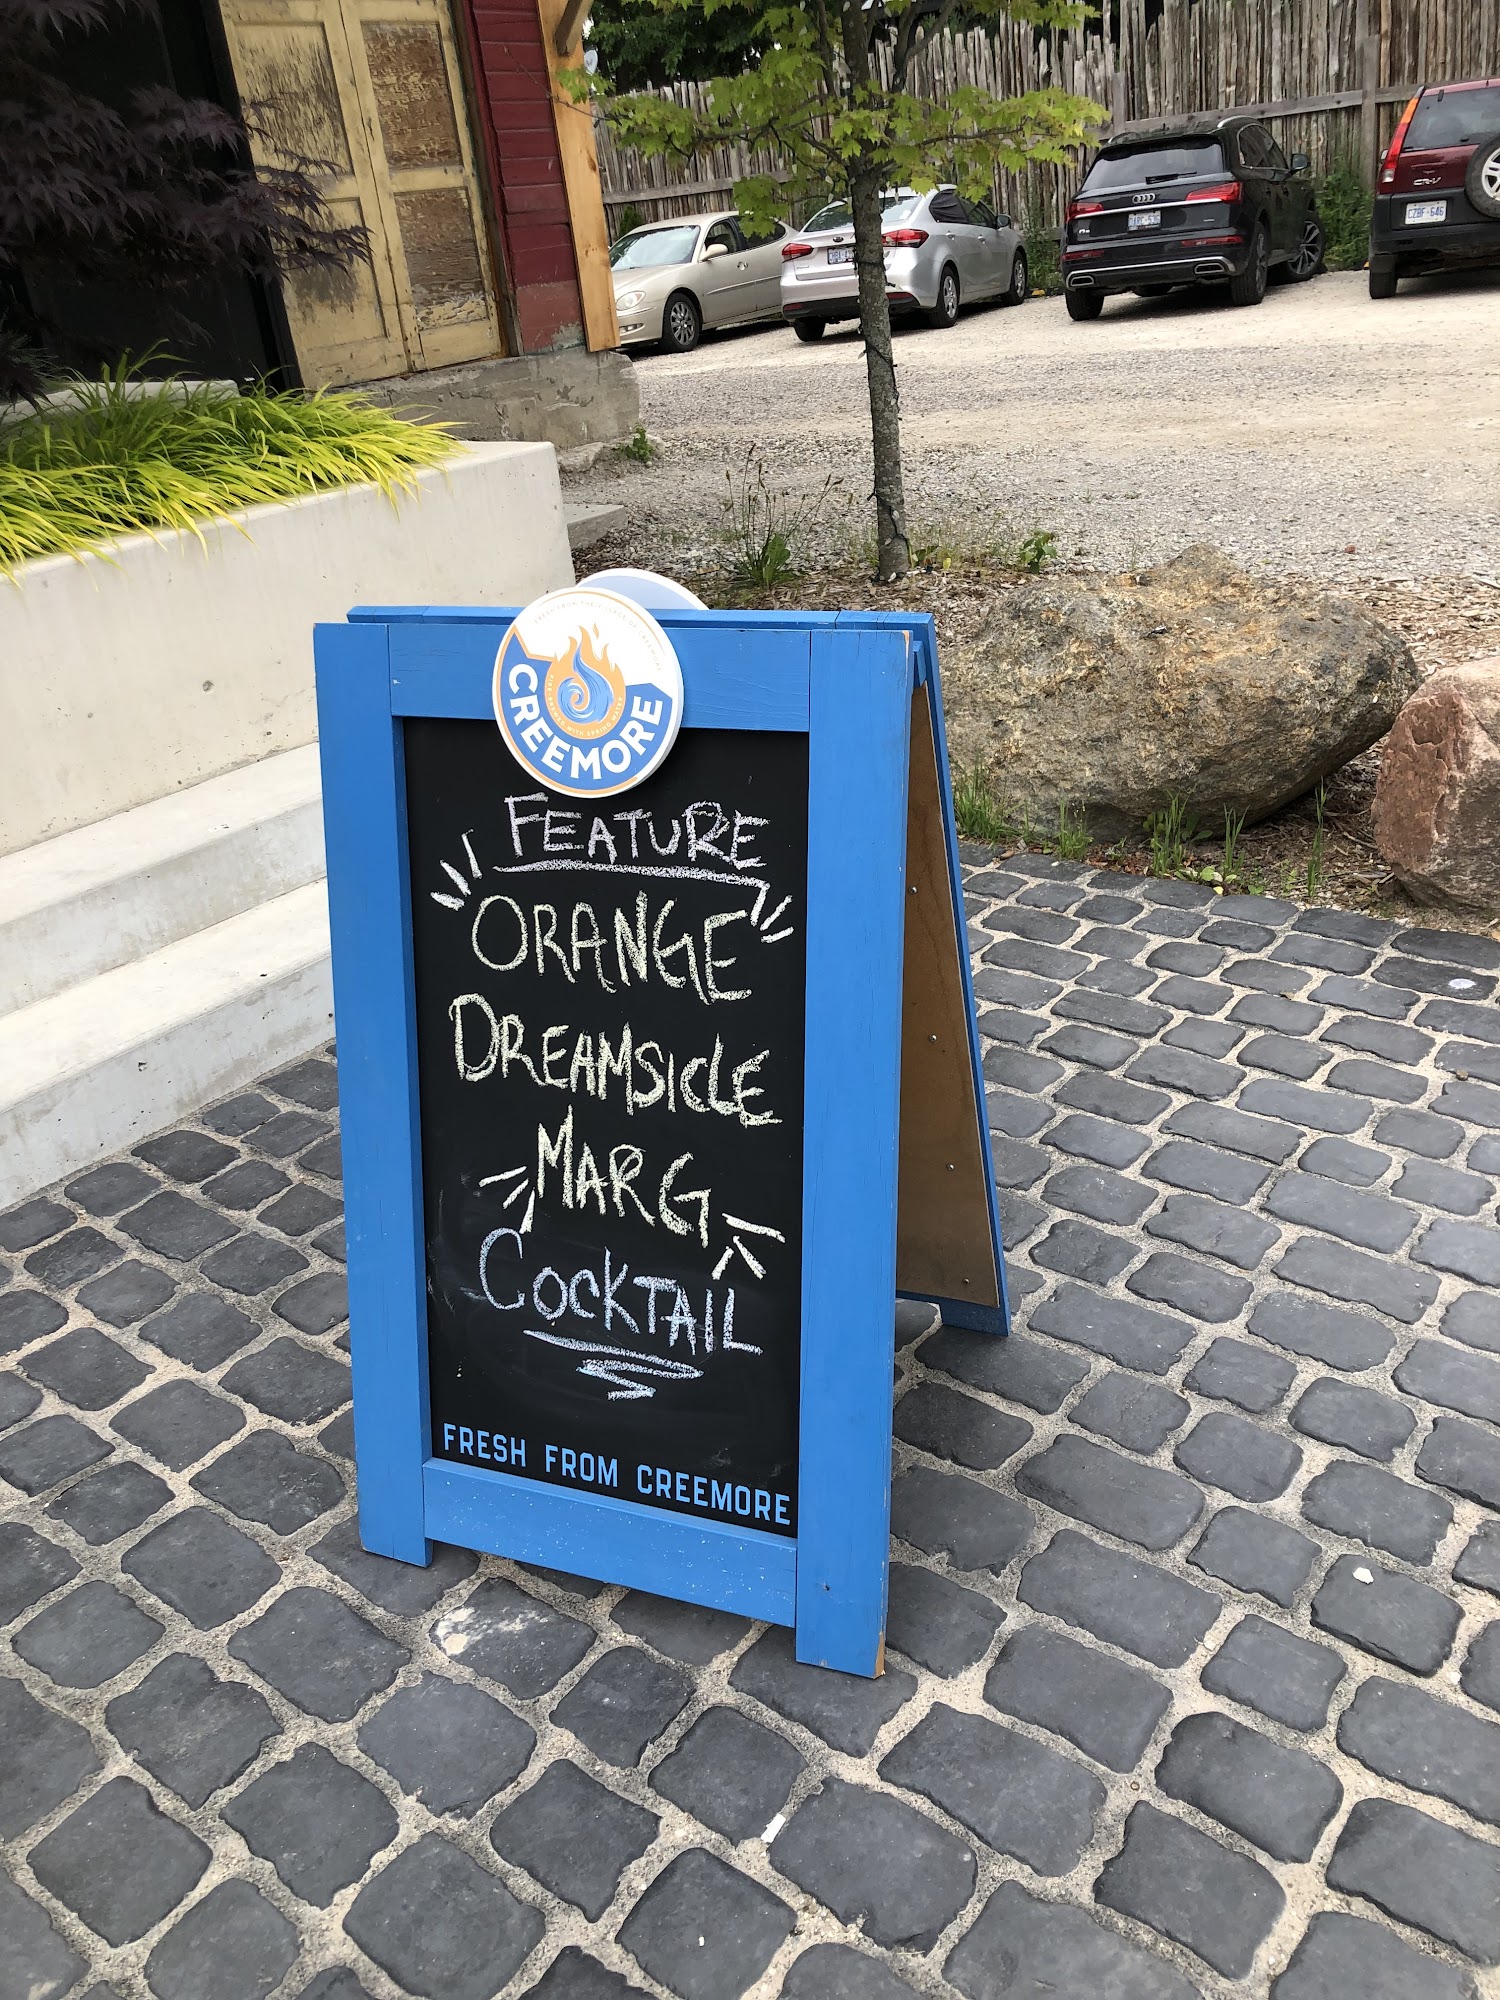 FRESH FROM THE VILLAGE OF CREEMORE
FIRE-BREWED WITH SPRING WATER
CREEMORE
FEATURE
ORANGE
DREAMSICLE
MARG
COCKTAIL
FRESH FROM CREEMORE
CR-V
CZBF·646